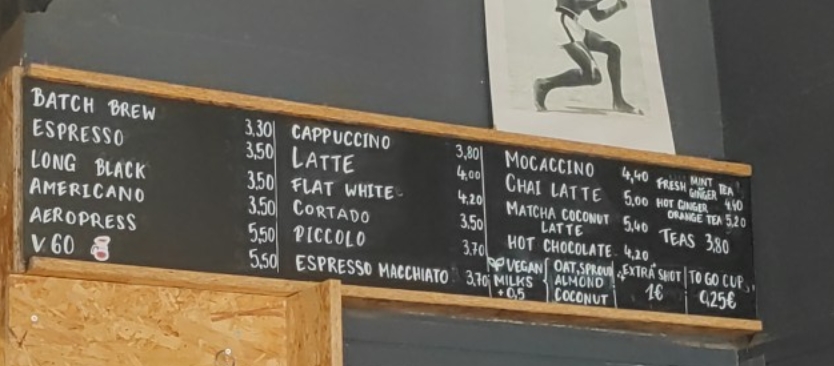 BATCH BREW 3,30
ESPRESSO 3,50
LONG BLACK 3,50
AMERICANO 3,50
AEROPRESS 5,50
V60 5,50
CAPPUCCINO 3,80
LATTE 4,00
FLAT WHITE 4,20
CORTADO 3,50
PICCOLO 3,70
ESPRESSO MACCHIATO 3,70
MOCACCINO 4,40
CHAI LATTE 5,00
MATCHA COCONUT
LATTE 5,40
HOT CHOCOLATE 4,20
FRESH MINT TEA
GINGER 4,40
HOT GINGER
ORANGE TEA 5,20
TEAS 3,80
VEGAN
MILKS
+0,5
OAT,
ALMOND
COCONUT
EXTRA SHOT
1€
TO GO CUP
0,25€